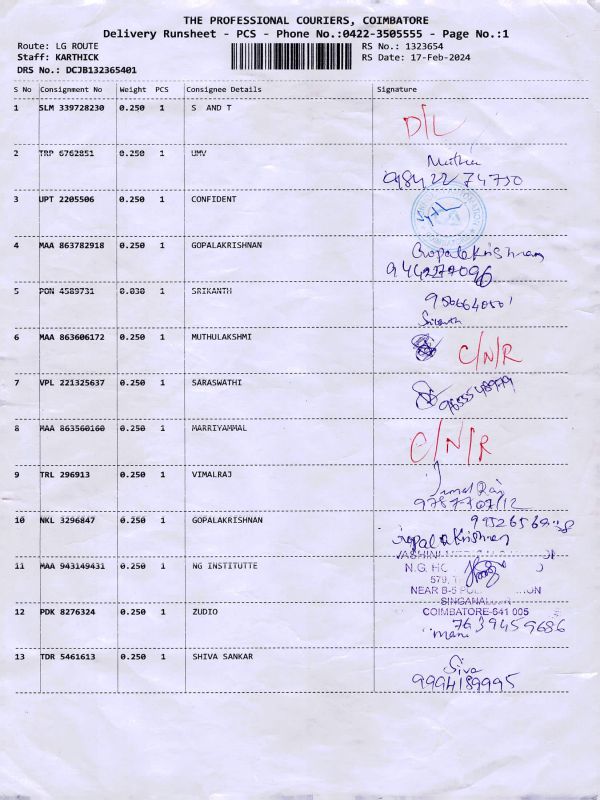 THE PROFESSIONAL COURIERS, COIMBATORE
Delivery Runsheet - PCS - Phone No.:0422-3505555 - Page No.:1
Route: LG ROUTE RS No.: 1323654
Staff: KARTHICK RS Date: 17-Feb-2024
DRS No.: DCJB132365401
S No Consignment No Weight PCS Consignee Details Signature
1 SLM 339728230 0.250 1 S AND T
D/L
2 TRP 6762851 0.250 1 UMV
9984 22 74730
3 UPT 2205506 0.250 1 CONFIDENT
4 MAA 863782918 0.250 1 GOPALAKRISHNAN Gopalakrishnan
5 PON 4589731 0.030 1 SRIKANTH
Srikanth
6 MAA 863606172 0.250 1 MUTHULAKSHMI C/N/R
7 VPL 221325637 0.250 1 SARASWATHI
8 MAA 863560160 0.250 1 MARRIYAMMAL
C/N/R
9 TRL 296913 0.250 1 VIMALRAJ
10 NKL 3296847 0.250 1 GOPALAKRISHNAN
Gopalakrishnan
11 MAA 943149431 0.250 1 NG INSTITUTTE N.G.
579,
NEAR B-5
SINGANALLUR
12 PDK 8276324 0.250 1 ZUDIO COIMBATORE-641 005
7639459686
mani
13 TDR 5461613 0.250 1 SHIVA SANKAR Siva
9994189995